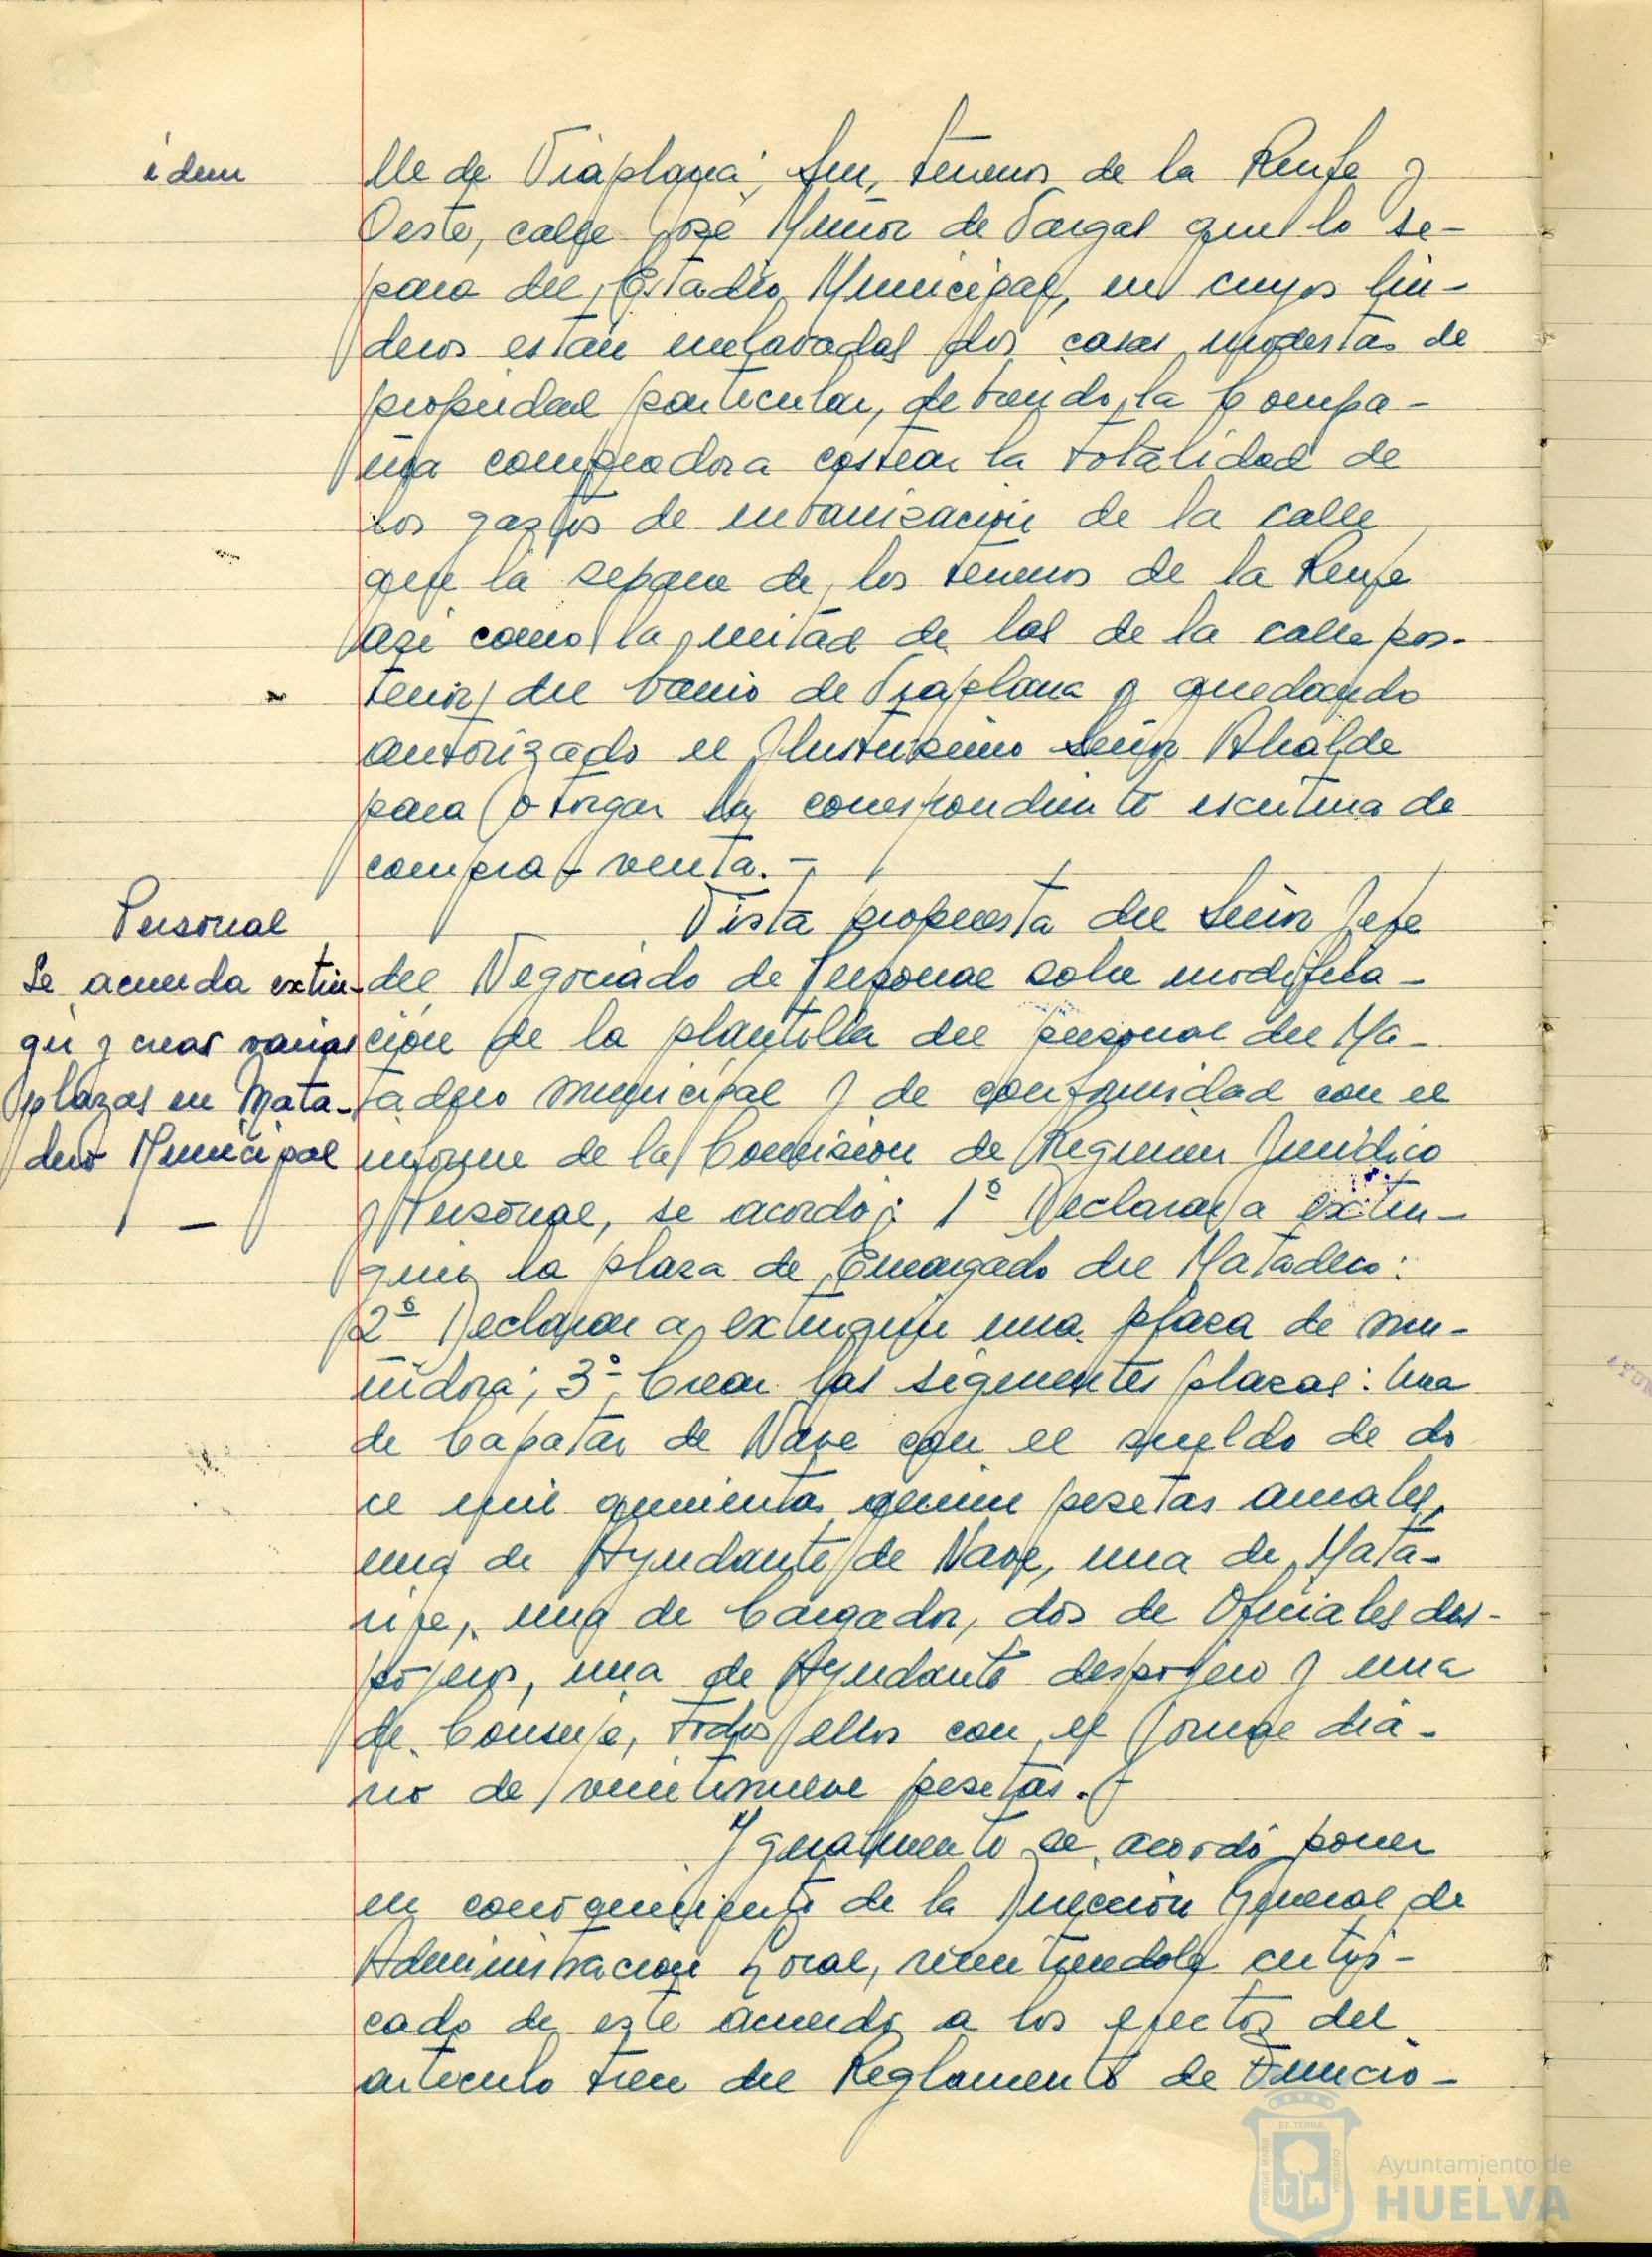 idem
lle de Viaplana; Sur, terrenos de la Renfe y
Oeste, calle José Muñoz de Vargas que lo se-
para del Estadio Municipal, en cuyos lin-
deros están enclavadas dos casas modestas de
propiedad particular, debiendo la Compa-
ñia compradora costear la totalidad de
los gastos de urbanización de la calle
que la separa de los terrenos de la Renfe
así como la mitad de las de la calle pos-
terior del barrio de Viaplana y quedando
autorizado el Ilustrisimo Señor Alcalde
para otorgar la correspondiente escritura de
compra-venta.-
Personal
Se acuerda extin-
guir y crear varias
plazas en Mata-
dero Municipal
-
Vista propuesta del Señor Jefe
del Negociado de Personal sobre modifica-
ción de la plantilla del personal del Ma-
tadero municipal y de conformidad con el
informe de la Comision de Regimen Juridico
y Personal, se acordó: 1º Declarar a extin-
guir la plaza de Encargado del Matadero:
2º Declarar a extinguir una plaza de mu-
ñidora; 3º Crear las siguientes plazas: Una
de Capataz de Nave con el sueldo de do
ce mil quinientas pesetas anuales,
una de Ayudante de Nave, una de Mata-
rife, una de Cargador, dos de Oficiales des-
pojeros, una de Ayudante despojero y una
de Conserje, todos ellos con el jornal dia-
rio de veintinueve pesetas.-
Igualmente se acordó poner
en conocimiento de la Dirección General de
Administración Local, remitiendole certifi-
cado de este acuerdo a los efectos del
articulo trece del Reglamento de Funcio-
Ayuntamiento de
HUELVA